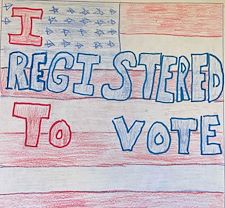 I
REGISTERED
TO VOTE